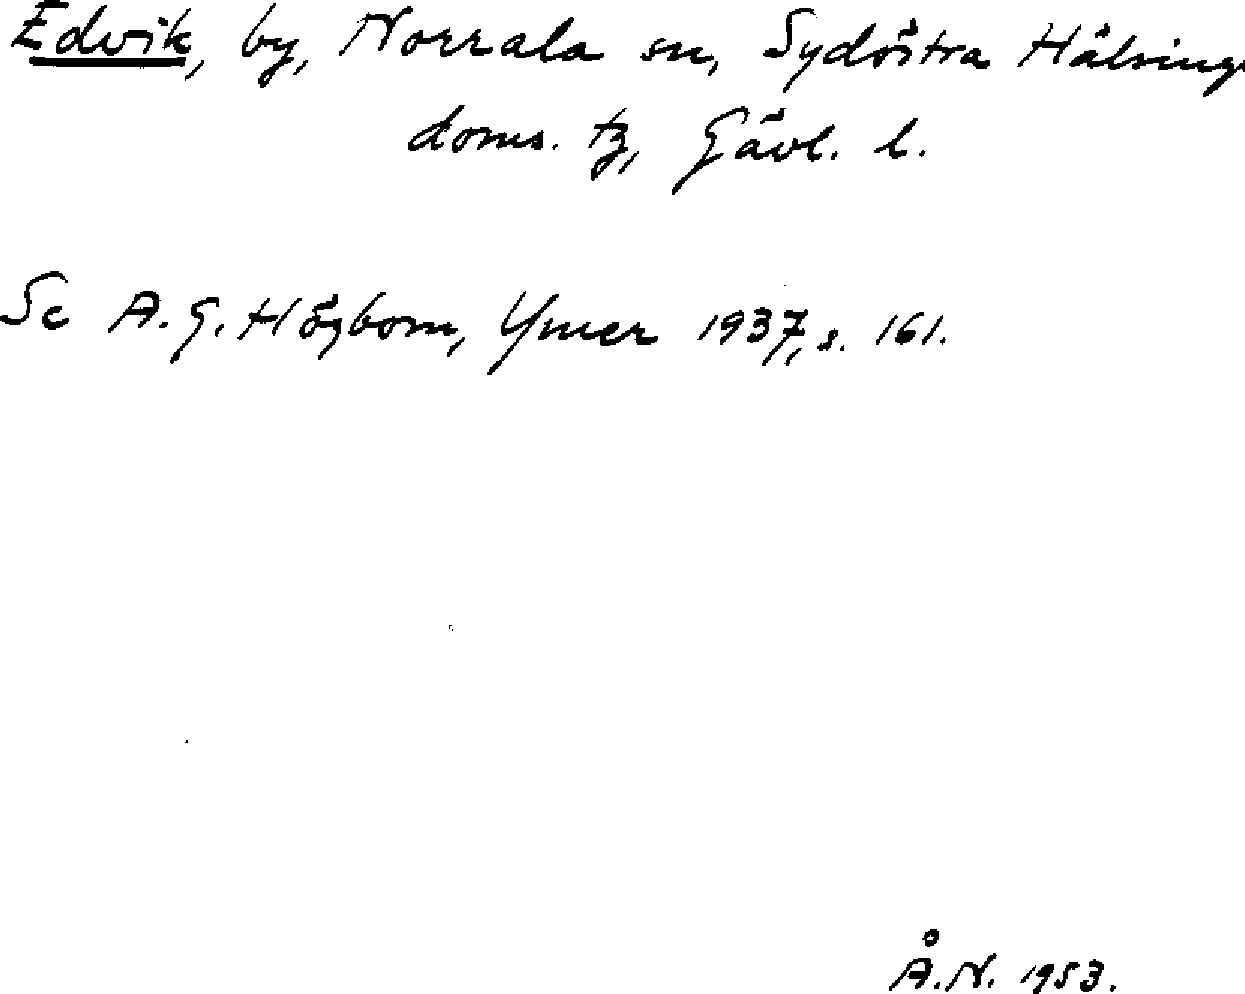 Edvik, by, Norrala sn, Sydöstra Hälsing-
doms. tg, Gävl. l.
Se A. G. Högbom, Ymer 1937, s. 161.
Å. N. 1953.